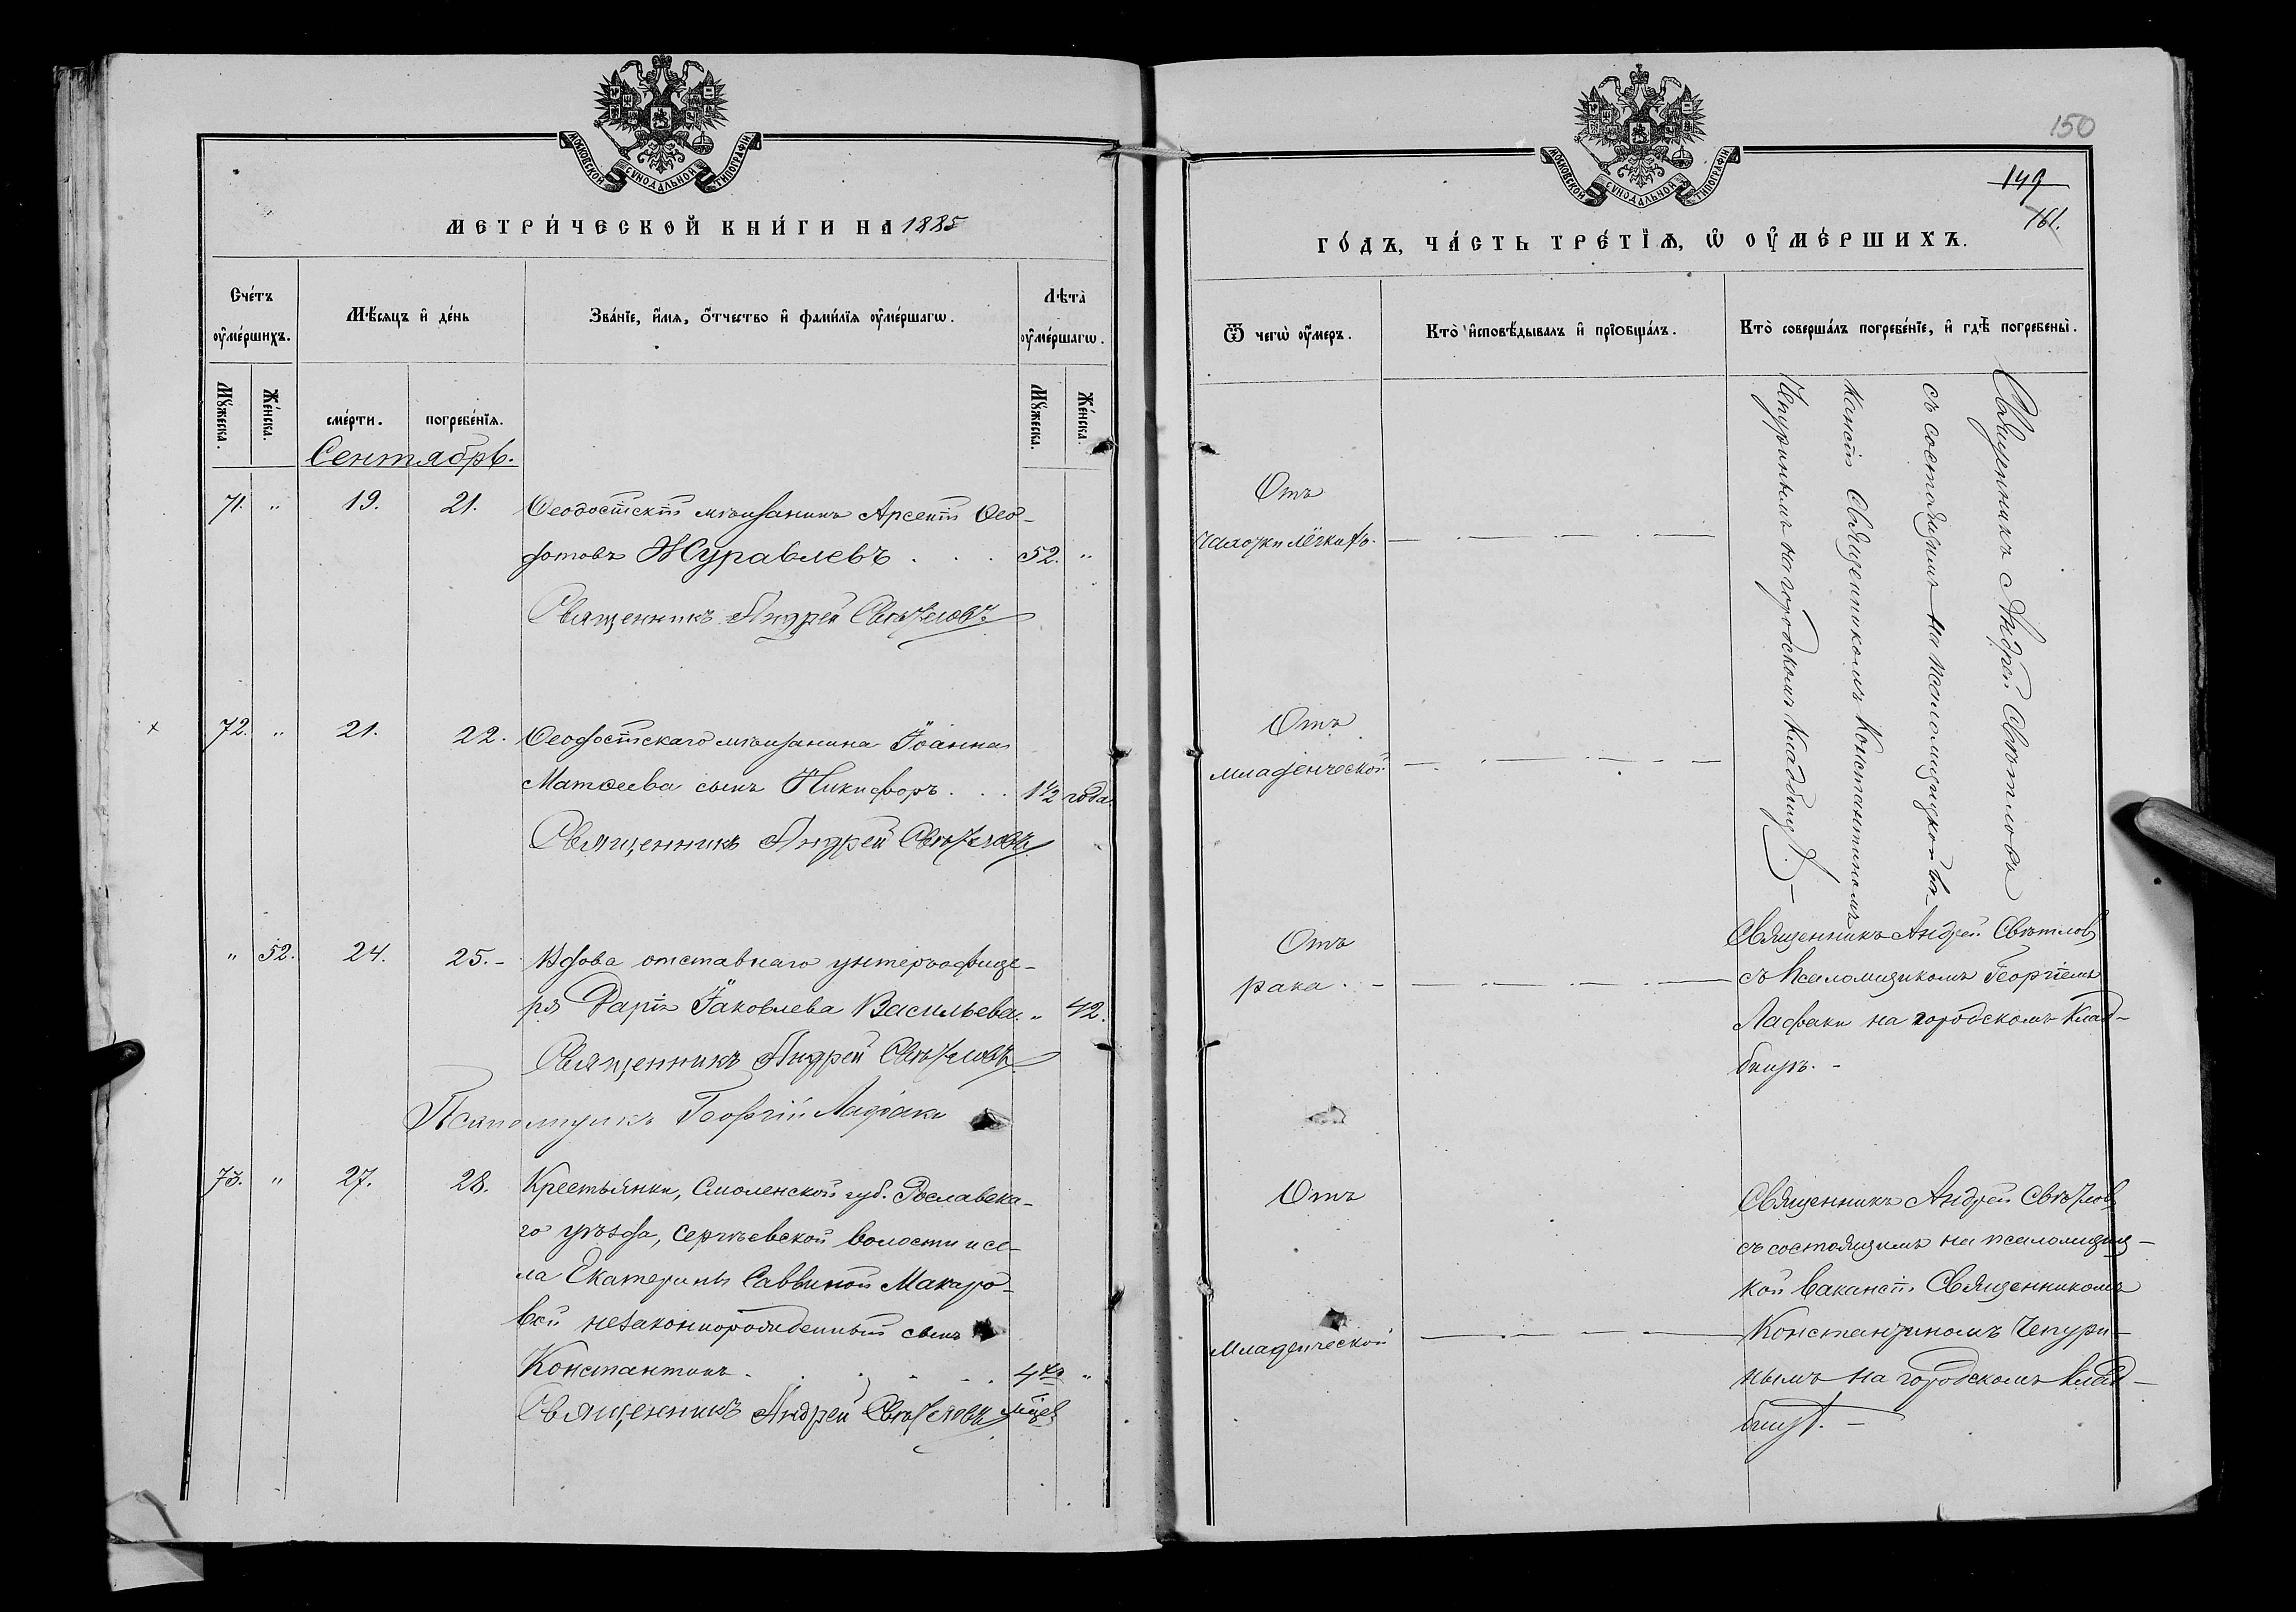 МОСКОВСКОЙ СѴНОДАЛЬНОЙ ТИПОГРАФІИ
МЕТРИ́ЧЕСКОЙ КНИ́ГИ НА 1885
Сче́тъ ᲂу҆ме́ршихъ.
Мѣ́сяцъ и҆ де́нь
Зва́нїе, и҆́мя, ѻ҆́тчество и҆ фами́лїя ᲂу҆ме́ршагѡ.
Лѣ́та ᲂу҆ме́ршагѡ.
Мꙋ́жеска.
Же́нска.
сме́рти.
погребе́нїя.
Мꙋ́жеска.
Же́нска.
Сентябрь.
71. " 19. 21. Ѳеодосійскій мѣщанинъ Арсеній Ѳео-
дотовъ Журавлевъ . . . 52. "
Священникъ Андрей Свѣтловъ
72. " 21. 22. Ѳеодосійскаго мѣщанина Іоанна
Матѳеева сынъ Никифоръ . . . 1½ года
Священникъ Андрей Свѣтловъ
" 52. 24. 25.- Вдова отставнаго унтеръофице-
ра Дарія Іаковлева Васильева. " 42.
Священникъ Андрей Свѣтловъ
Псаломщикъ Георгій Лафаки
73. " 27. 28. Крестьянки, Смоленской губ. Рославска-
го уѣзда, Сергѣевской волости и се-
ла Екатерины Саввиной Макаро-
вой незаконнорожденный сынъ
Константинъ . . . . . 4хъ "
Священникъ Андрей Свѣтловъ мцев
МОСКОВСКОЙ СѴНОДАЛЬНОЙ ТИПОГРАФІИ
150
149
161.
ГО́ДЪ, ЧА́СТЬ ТРЕ́ТЇѦ, Ѡ҆ ОУ҆МЕ́РШИХЪ.
Ѿ чегѡ̀ ᲂу҆́меръ.
Кто̀ и҆сповѣ́дывалъ и҆ прїобща́лъ.
Кто̀ соверша́лъ погребе́нїе, и҆ гдѣ̀ погребены̀.
Отъ
чахотки лёгкихъ.
Отъ
младенческой
Священникъ Андрей Свѣтловъ
съ состоящимъ на псаломщицкой ва-
кансіи Священникомъ Константиномъ
Чепуринымъ на городскомъ кладбищѣ.
Отъ
рака.
Священникъ Андрей Свѣтловъ
съ Псаломщикомъ Георгіемъ
Лафаки на городскомъ клад-
бищѣ. -
Отъ
младенческой
Священникъ Андрей Свѣтловъ
съ состоящимъ на псаломщиц-
кой вакансіи Священникомъ
Константиномъ Чепури-
нымъ на городскомъ клад-
бищѣ. -